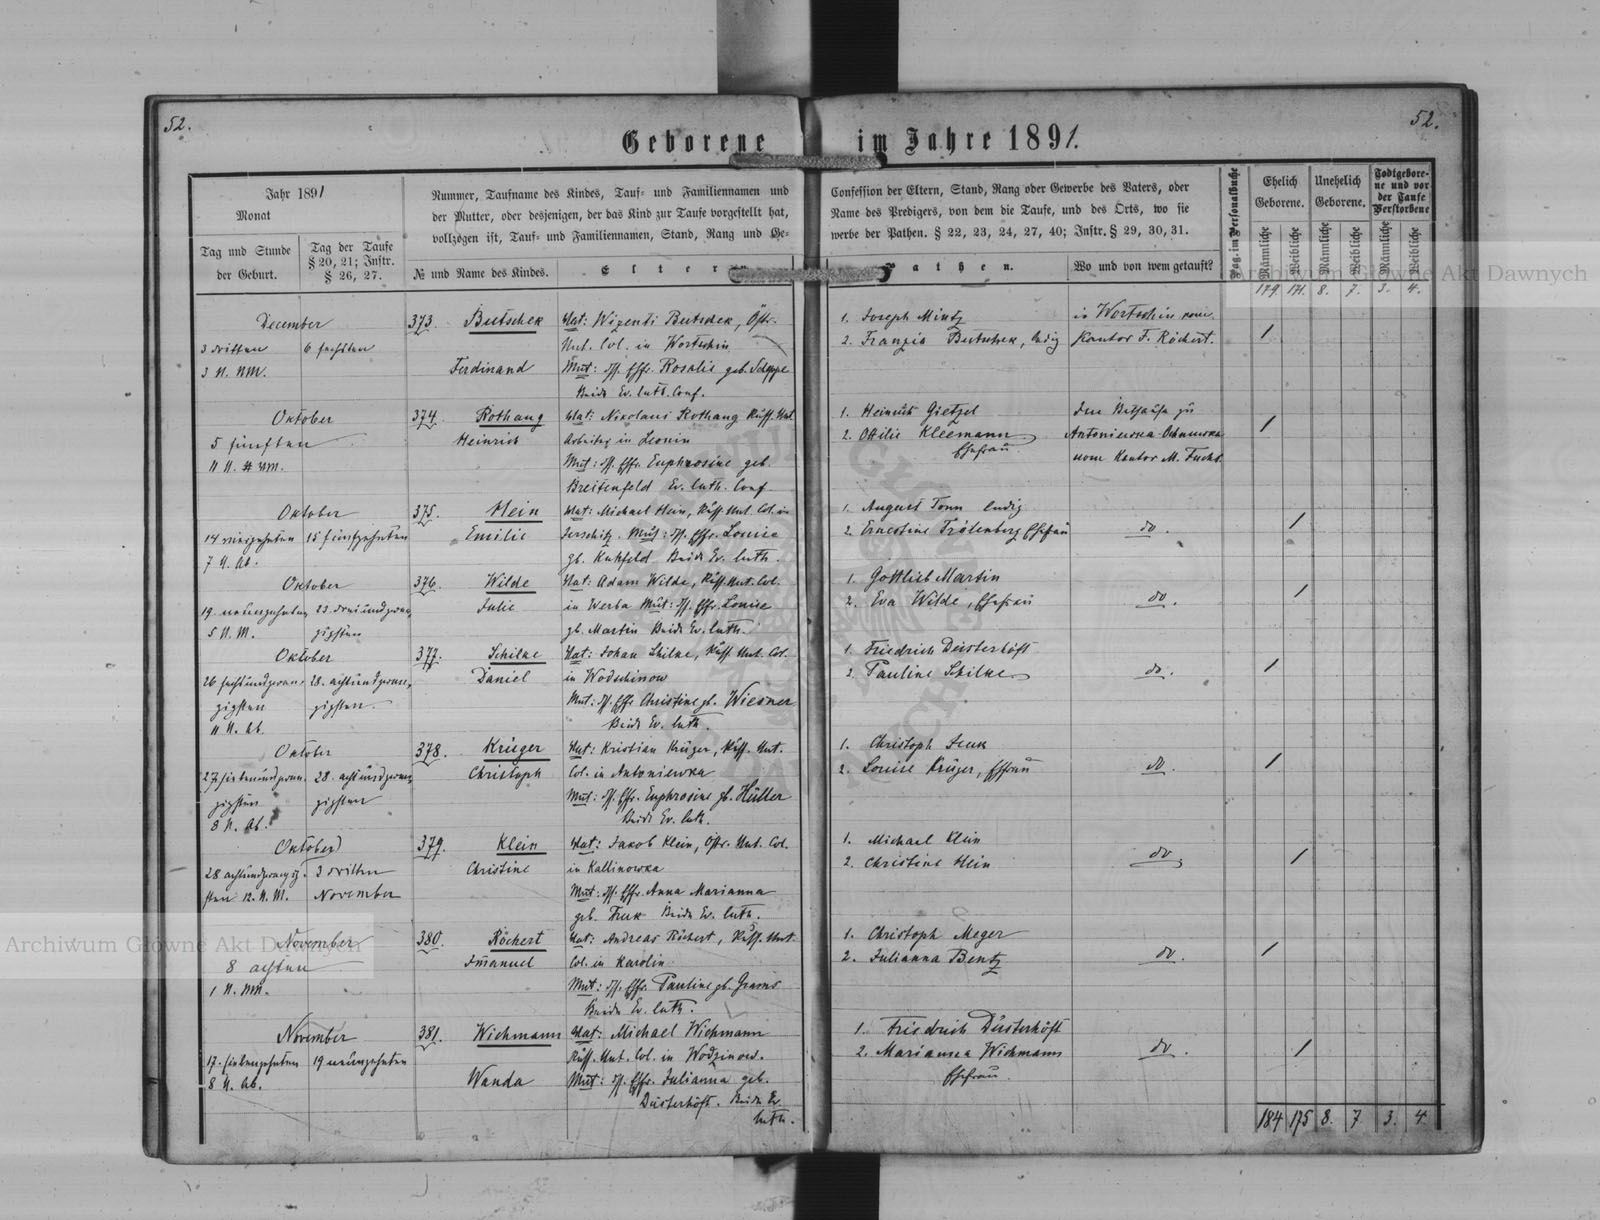 52.
52.
Geborene im Jahre 1891.
Jahr 1891
Monat
Tag und Stunde
der Geburt.
Tag der Taufe
§ 20, 21; Instr.
§ 26, 27.
Nummer, Taufname des Kindes, Tauf- und Familiennamen und
der Mutter, oder desjenigen, der das Kind zur Taufe vorgestellt hat,
vollzogen ist, Tauf- und Familiennamen, Stand, Rang und Ge-
№ und Name des Kindes.
Eltern
Confession der Eltern, Stand, Rang oder Gewerbe des Vaters, oder
Name des Predigers, von dem die Taufe, und des Orts, wo sie
werbe der Pathen. § 22, 23, 24, 27, 40; Instr. § 29, 30, 31.
Pathen.
Wo und von wem getauft?
Pag. im Personalbuche
Ehelich
Geborene.
Unehelich
Geborene.
Todtgebore-
ne und vor
der Taufe
Verstorbene
Männliche
Weibliche
Männliche
Weibliche
Männliche
Weibliche
179. 171. 8. 7. 3. 4.
December
3 dritten
3 U. NM.
6 sechsten
373. Butschek
Ferdinand
Vat: Wizenti Butschek, Östr.
Unt. Col. in Wortschin
Mut: Ehfr. Rosalie geb. Scheppe
Beide Ev. luth. Conf.
1. Joseph Mintz
2. Franzis Butschek, ledig
in Wortschin vom
Kantor F. Röchert.
1
Oktober
5 fünften
11 U.
374. Rothang
Heinrich
Vat: Nikolaus Rothang Russ. Unt.
Arbeiter in Leonin
Mut: Ehfr. Euphrosine geb.
Breitenfeld Ev. luth. Conf
1. Heinrich Gietzel
2. Ottilie Kleemann
Ehefrau
Im Bethause zu
Antoniewka
vom Kantor M. Fuchs.
1
Oktober
14 vierzehnten
7 U. Ab.
15 fünfzehnten
375. Hein
Emilie
Vat: Michael Hein, Russ. Unt. Col. in
Mut: Ehfr. Louise
gb. Kuhfeld Beide Ev. luth.
1. August Tonn ledig
2. Ernestine Frölenberg Ehefrau
do.
1
Oktober
19. neunzehnten
5 U. M.
23. dreiundzwan-
zigsten
376. Wilde
Julie
Vat: Adam Wilde, Russ. Unt. Col.
in Werba Mut: Ehfr. Louise
gb. Martin Beide Ev. luth.
1. Gottlieb Martin
2. Eva Wilde, Ehefrau
do.
1
Oktober
26 sechsundzwan-
zigsten
11 U. Ab.
28. achtundzwan-
zigsten
377. Schilke
Daniel
Vat: Johan Schilke, Russ. Unt. Col.
in Wodschinow
Mut: Ehfr Christine gb. Wiesner
Beide Ev. luth.
1. Friedrich Düsterhöft
2. Pauline Schilke
do.
1
Oktober
27 siebenundzwan-
zigsten
8 U. Ab.
28. achtundzwan-
zigsten
378. Krüger
Christoph
Vat: Kristian Krüger, Russ. Unt.
Col. in Antoniewka
Mut: Ehfr. Euphrosine gb. Hüller
Beide Ev. luth.
1. Christoph
2. Louise Krüger, Ehfrau
do.
1
Oktober
28 achtundzwanzig-
sten 12. U. M.
3 dritten
November
379. Klein
Christine
Vat: Jakob Klein, Östr. Unt. Col.
in Kallinowka
Mut: Ehfr. Anna Marianna
geb. Beide Ev. luth.
1. Michael Klein
2. Christine Hein
do
1
November
8 achten
1 U. NM.
380. Röchert
Imanuel
Vat: Andreas Röchert, Russ. Unt.
Col. in Karolin
Mut: Ehfr. Pauline gb. Grams
Beide Ev. luth.
1. Christoph Meger
2. Julianna Bentz
do.
1
November
17. siebenzehnten
8 U. Ab.
19 neunzehnten
381. Wichmann
Wanda
Vat: Michael Wichmann
Russ. Unt. Col. in Wodzinow.
Mut: Ehfr. Julianna geb.
Düsterhöft. Beide Ev.
luth.
1. Friedrich Düsterhöft
2. Marianna Wichmann
Ehefrau
do.
1
184 175 8. 7 3. 4.
Archiwum Główne Akt Dawnych
Archiwum Główne Akt Dawnych